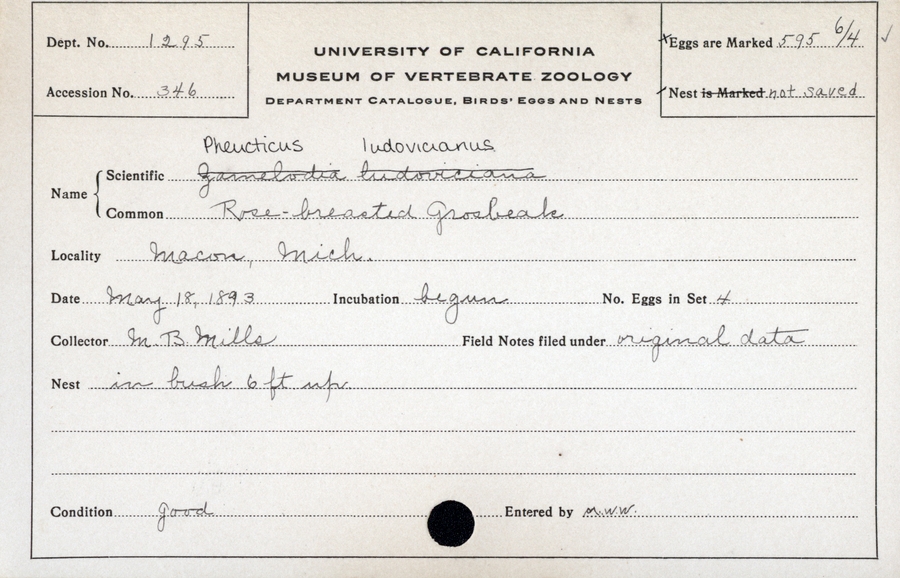 Dept. No. 1295
Accession No. 346
UNIVERSITY OF CALIFORNIA
MUSEUM OF VERTEBRATE ZOOLOGY
DEPARTMENT CATALOGUE, BIRDS' EGGS AND NESTS
Eggs are Marked 595 6/4 ✓
Nest is Marked not saved
Pheucticus ludovicianus
Name
Scientific Zamelodia ludoviciana
Common Rose-breasted Grosbeak
Locality Macon, Mich.
Date May 18, 1893 Incubation begun No. Eggs in Set 4
Collector M. B. Mills Field Notes filed under original data
Nest in bush 6 ft up.
Condition good Entered by m.w.w.